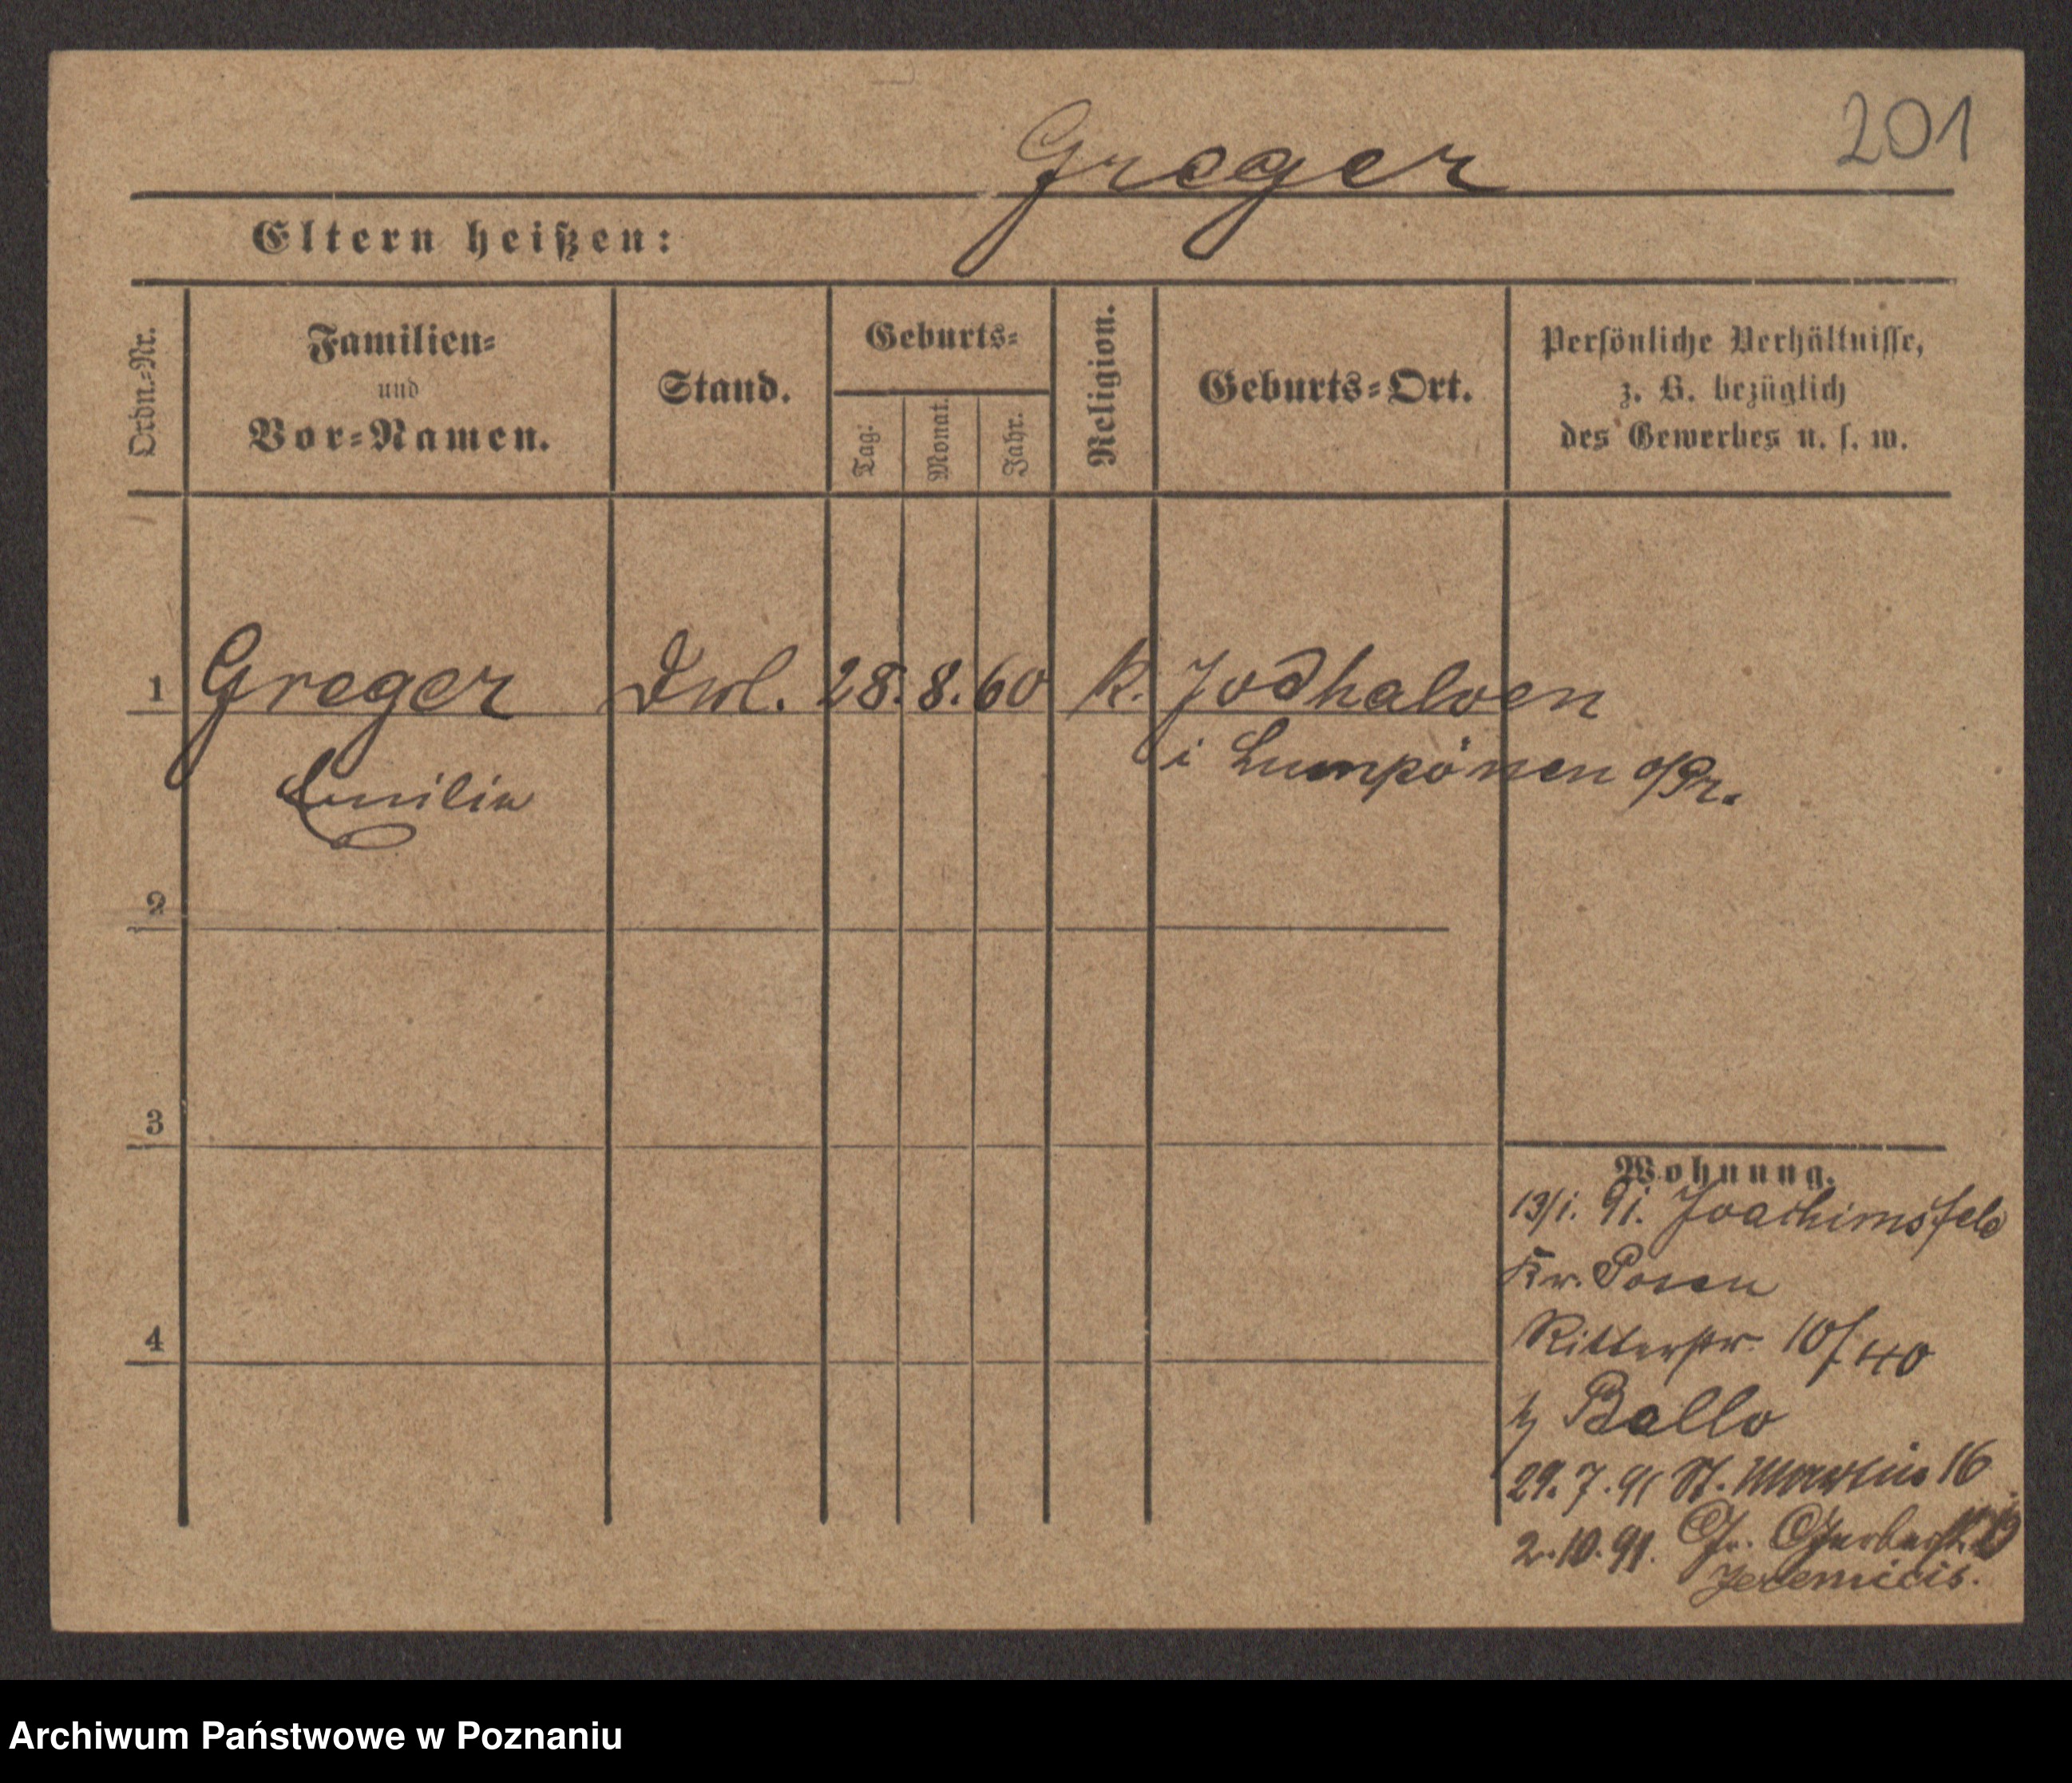 201
Greger
Eltern heißen:
Ordn.-Nr.
Familien-
und
Vor-Namen.
Stand.
Geburts-
Tag.
Monat.
Jahr.
Religion.
Geburts-Ort.
Persönliche Verhältnisse,
z. B. bezüglich
des Gewerbes u. s. w.
1 Greger 28. 8. 60 K. Jodhalven
Emilia
i Lumpönen o/Pr.
2
3
4
Wohnung.
13/1. 91. Joachimsfeld
Kr. Posen
Ritterstr. 10/40
b/ Ballo
29. 7. 91 St. Martin 16
2. 10. 91. Gr. Gerberstr.
Archiwum Państwowe w Poznaniu